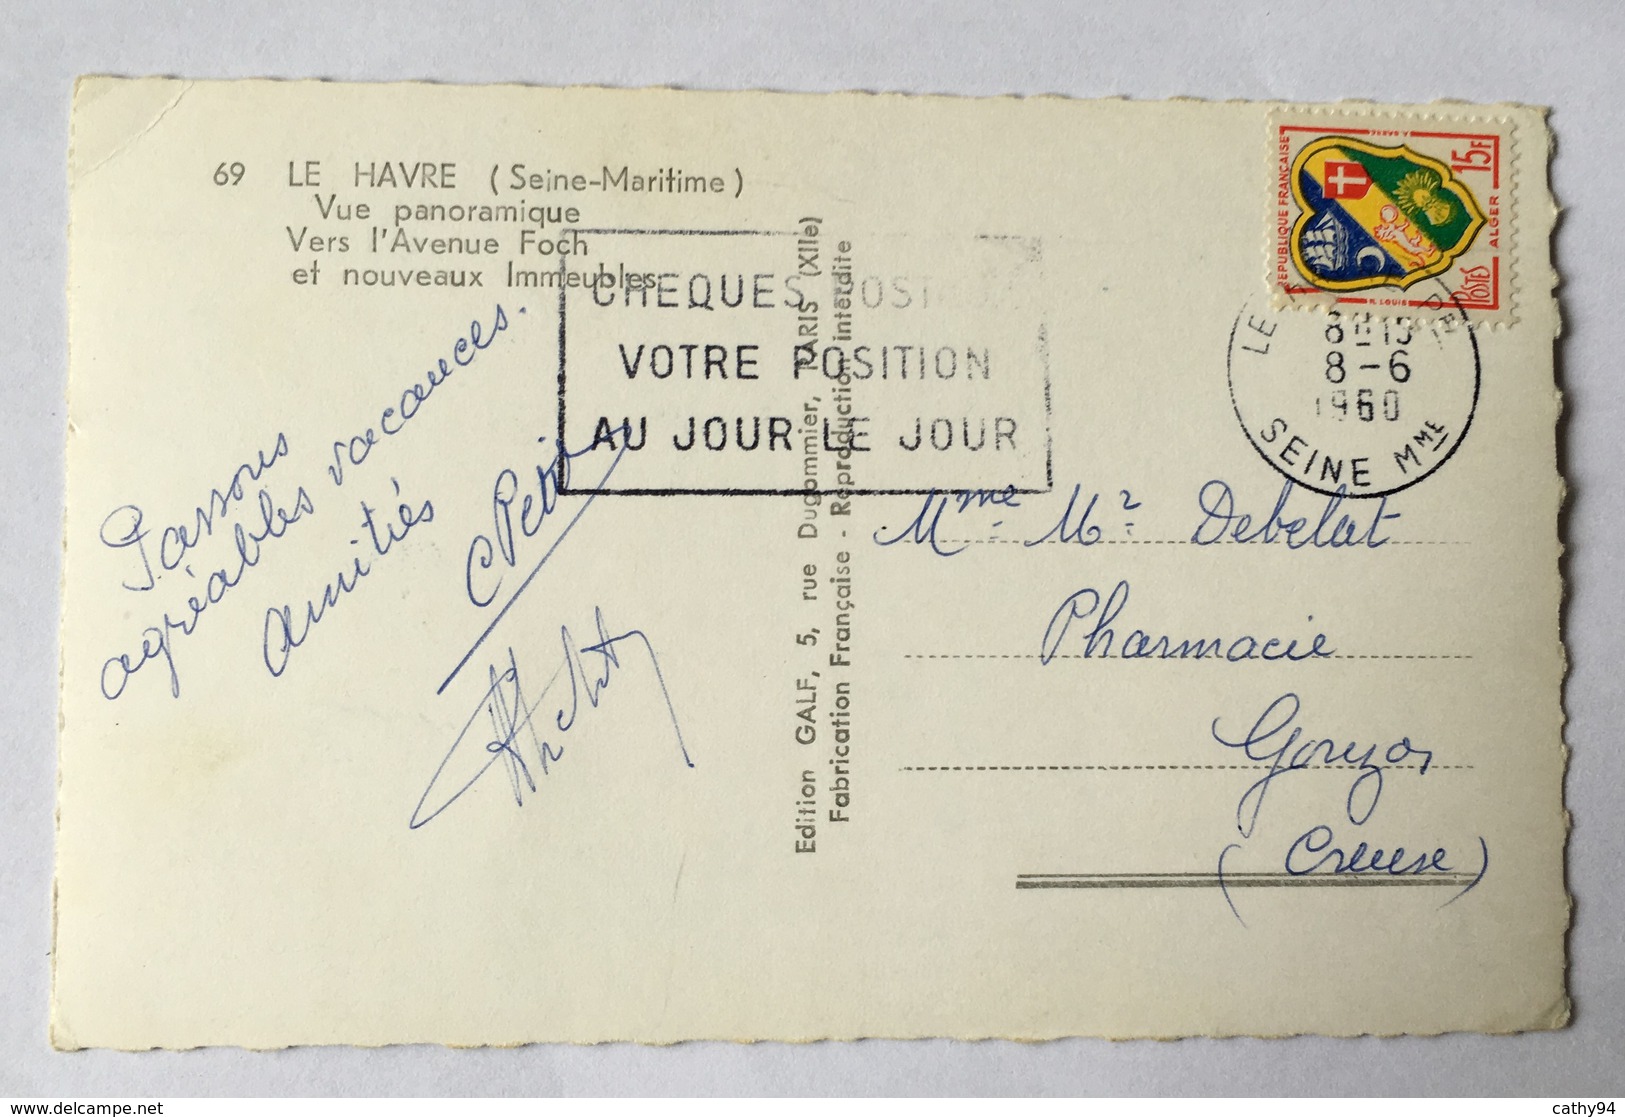 69 LE HAVRE (Seine-Maritime)
Vue panoramique
Vers l'Avenue Foch
et nouveaux Immeubles
CHEQUES POSTAUX
VOTRE POSITION
AU JOUR LE JOUR
Passons
agréables vacances.
amitiés
CPetit
Edition GALF, 5, rue Dugommier, PARIS (XIIe)
Fabrication Française - Reproduction interdite
REPUBLIQUE FRANÇAISE
15F
ALGER
POSTES
R. LOUIS
LE
8-6
1960
SEINE Mme
Mme. Mr. Debelut
Pharmacie
Gouzon
(Creuse)
cathy94